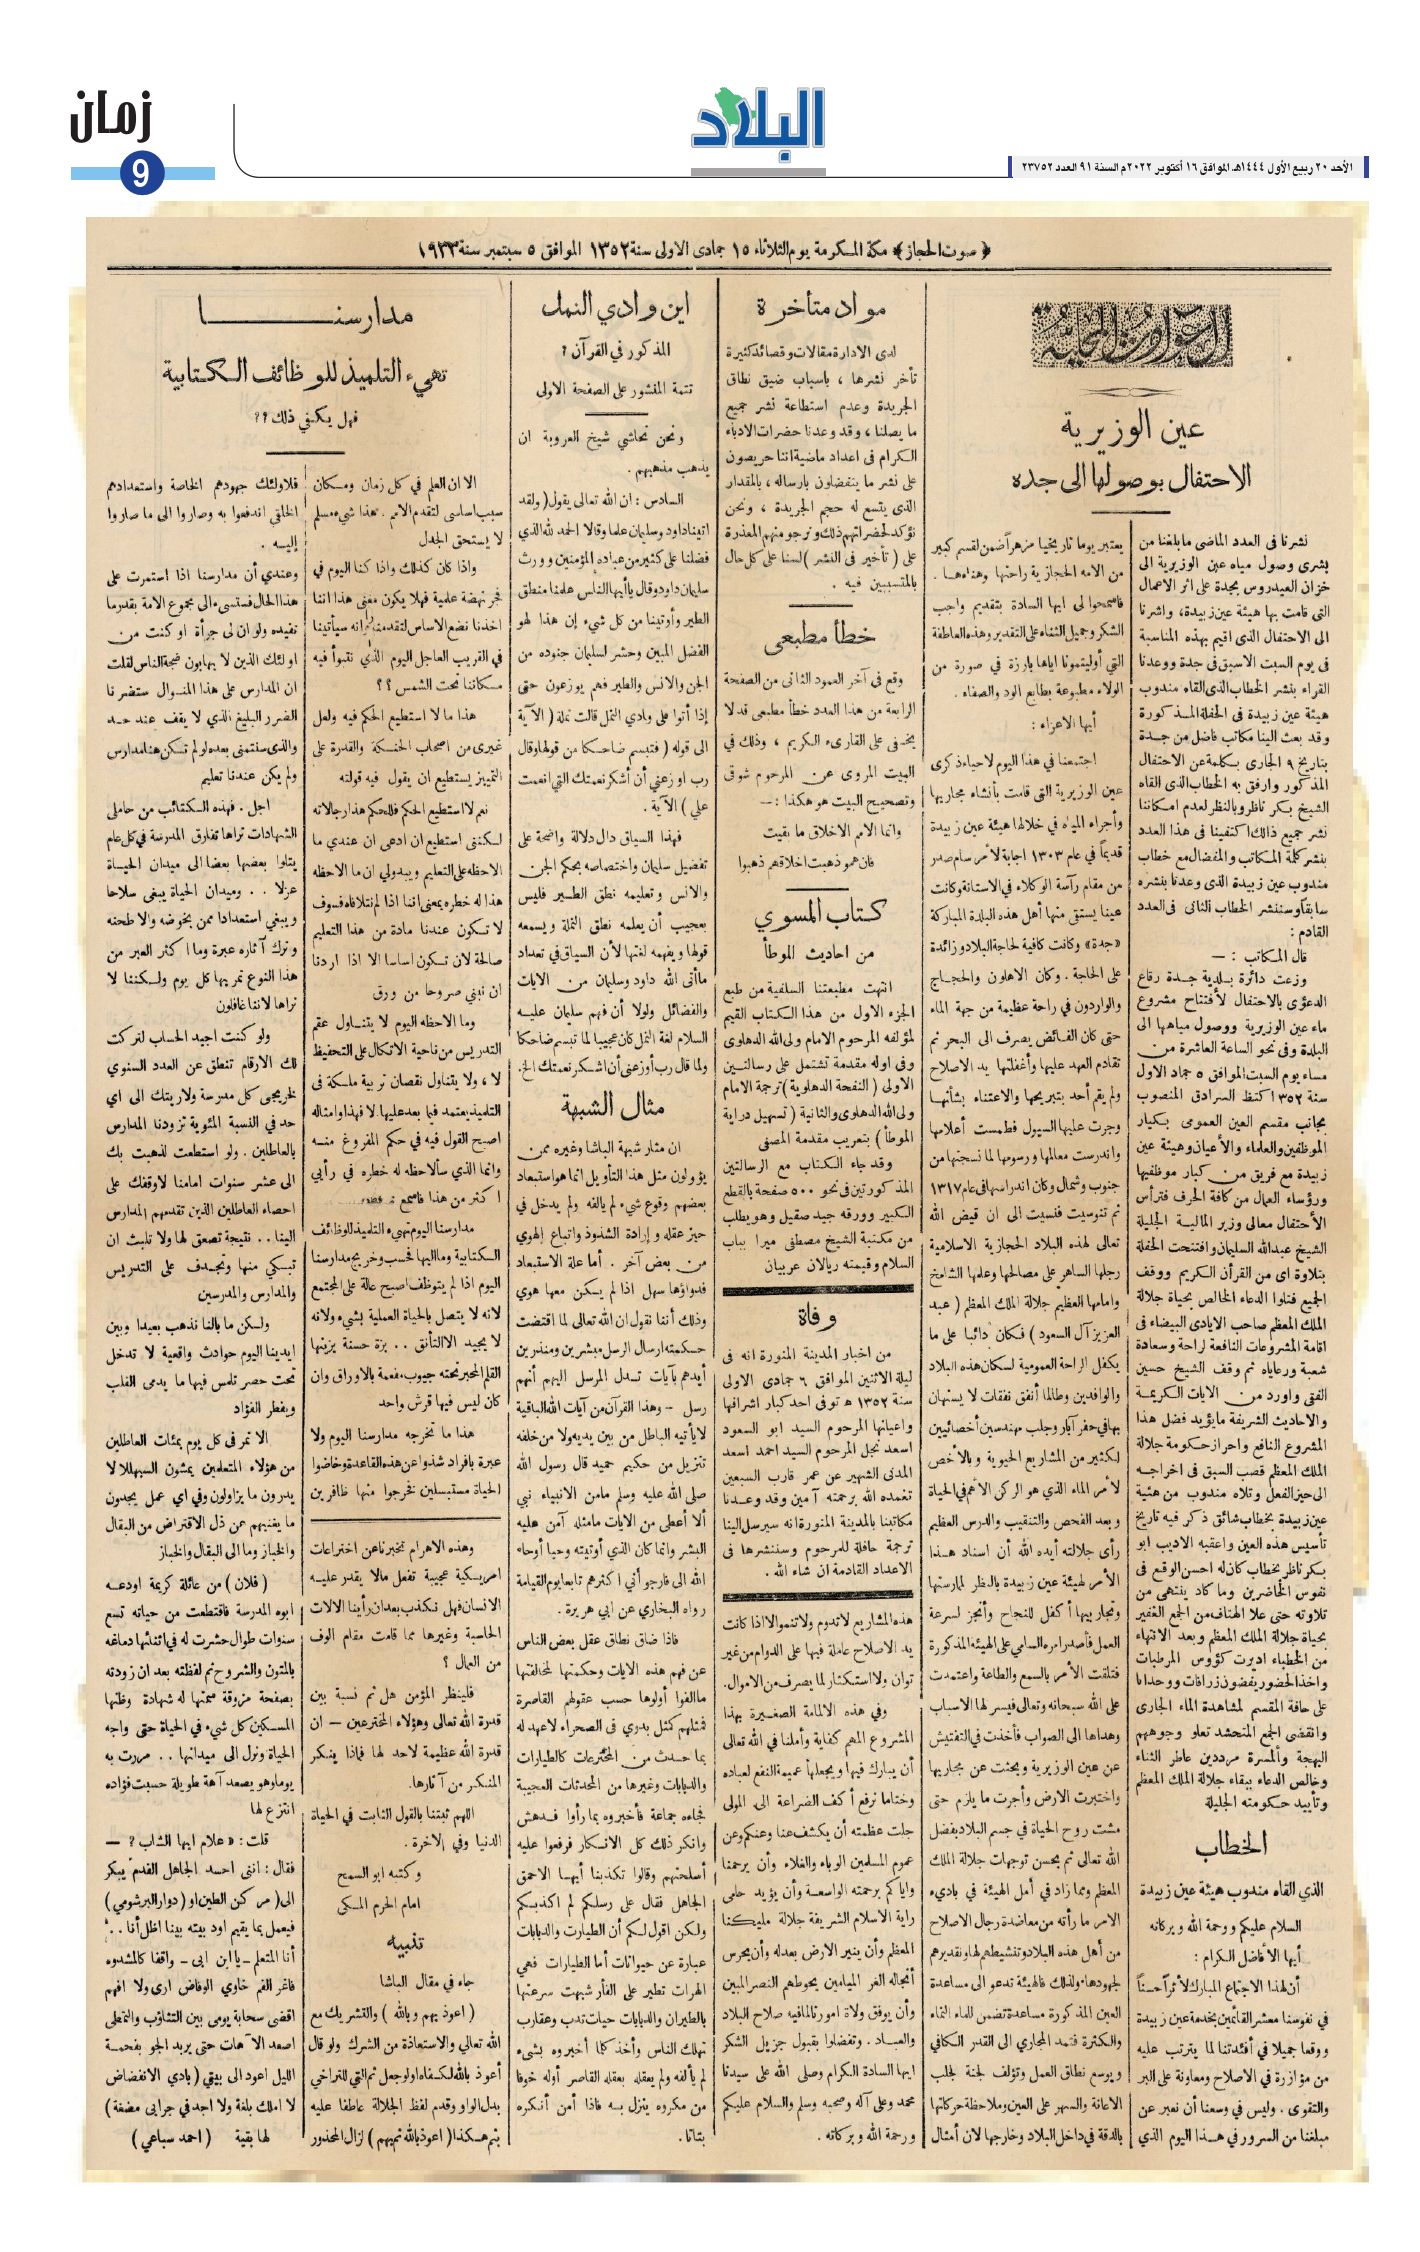 زمان
9
البلاد
الأحد ٢٠ ربيع الأول ١٤٤٤هـ الموافق ١٦ أكتوبر ٢٠٢٢م السنة ٩١ العدد ٢٣٧٥٢
﴿ صوت الحجاز ﴾ مكة المكرمة يوم الثلاثاء ١٥ جمادى الاولى سنة ١٣٥٢ الموافق ٥ سبتمبر سنة ١٩٣٣
عين الوزيرية
الاحتفال بوصولها الى جده
نشرنا فى العدد الماضى ما بلغنا من
بشرى وصول مياه عين الوزيرية الى
خزان العيدروس بجدة على اثر الاعمال
التى قامت بها هيئة عين زبيدة، واشرنا
الى الاحتفال الذى اقيم بهذه المناسبة
فى يوم السبت الاسبق فى جدة ووعدنا
القراء بنشر الخطاب الذى القاه مندوب
هيئة عين زبيدة فى الحفلة المذكورة
وقد بعث الينا مكاتب فاضل من جدة
بتاريخ ٩ الجارى بكلمة عن الاحتفال
المذكور وارفق به الخطاب الذى القاه
الشيخ بكر ناظر وبالنظر لعدم امكاننا
نشر جميع ذالك اكتفينا فى هذا العدد
بنشر كلمة المكاتب والمفضال مع خطاب
مندوب عين زبيدة الذى وعدنا بنشره
سابقاً وسننشر الخطاب الثانى فى العدد
القادم :
قال المكاتب : —
وزعت دائرة بلدية جدة رقاع
الدعوى بالاحتفال لأفتتاح مشروع
ماء عين الوزيرية ووصول مياهها الى
البلدة وفى نحو الساعة العاشرة من
مساء يوم السبت الموافق ٥ جماد الاول
سنة ١٣٥٢ اكتظ السرادق المنصوب
بجانب مقسم العين العمومى بكبار
الموظفين والعلماء والأعيان وهيئة عين
زبيدة مع فريق من كبار موظفيها
ورؤساء العمال من كافة الحرف فترأس
الأحتفال معالى وزير المالية الجليلة
الشيخ عبدالله السليمان وافتتحت الحفلة
بتلاوة اى من القرأن الكريم ووقف
الجميع فتلوا الدعاء الخالص بحياة جلالة
الملك المعظم صاحب الايادى البيضاء فى
اقامة المشروعات النافعة لراحة وسعادة
شعبة ورعاياه ثم وقف الشيخ حسين
الفقى واورد من الايات الكريمة
والاحاديث الشريفة مايؤيد فضل هذا
المشروع النافع واحراز حكومة جلالة
الملك المعظم قصب السبق فى اخراجه
الى حيز الفعل وتلاه مندوب من هئية
عين زبيدة بخطاب شائق ذكر فيه تاريخ
تأسيس هذه العين واعقبه الاديب ابو
بكر ناظر بخطاب كان له احسن الوقع فى
نفوس الحاضرين وما كاد ينتهى من
تلاوته حتى علا الهتاف من الجمع الغفير
بحياة جلالة الملك المعظم وبعد الانتهاء
من الخطباء اديرت كؤوس المرطبات
واخذ الحضور يفضون زرافات ووحدانا
على حافة المقسم لمشاهدة الماء الجارى
وانقضى الجمع المتحشد تعلو وجوههم
البهجة والمسرة مرددين عاطر الثناء
وخالص الدعاء ببقاء جلالة الملك المعظم
وتأييد حكومته الجليلة
الخطاب
الذي القاه مندوب هيئة عين زبيدة
السلام عليكم ورحمة الله وبركاته
أيها الأفاضل الكرام :
أن لهذا الاجتماع المبارك لأثراً حسناً
في نفوسنا معشر القائمين بخدمة عين زبيدة
ووقعا جميلا في أفئدتنا لما يترتب عليه
من مؤازرة في الاصلاح ومعاونة على البر
والتقوى . وليس في وسعنا أن نعبر عن
مبلغنا من السرور في هذا اليوم الذي
يعتبر يوما تاريخيا مزهراً ضمن لقسم كبير
من الامه الحجازية راحتها وهناءها .
فاسمحوا لى ايها السادة بتقديم واجب
الشكر وجميل الثناء على التقدير وهذه العاطفة
التي أوليتمونا اياها بارزة في صورة من
الولاء مطبوعة بطابع الود والصفاء .
أيها الاعزاء :
اجتمعنا في هذا اليوم لاحياء ذكرى
عين الوزيرية التى قامت بأنشاء مجاريها
وأجراء المياه في خلالها هيئة عين زبيدة
قديماً في عام ١٣٠٣ اجابة لأمر سام صدر
من مقام رآسة الوكلاء في الاستانة وكانت
عينا يستقى منها أهل هذه البلدة المباركة
«جدة» وكانت كافية لحاجة البلاد وزائدة
على الحاجة . وكان الاهلون والحجاج
والواردون في راحة عظيمة من جهة الماء
حتى كان الفائض يصرف الى البحر ثم
تقادم العهد عليها وأغفلتها يد الاصلاح
ولم يقم أحد بتبريحها والاعتناء بشأنها
وجرت عليها السيول فطمست أعلامها
واندرست معالمها ورسومها لما نسجتها من
جنوب وشمال وكان اندراسها في عام ١٣١٧
ثم تنوسيت فنسيت الى ان قيض الله
تعالى لهذه البلاد الحجازية الاسلامية
رجلها الساهر على مصالحها وعلمها الشامخ
وامامها العظيم جلالة الملك المعظم ( عبد
العزيز آل السعود ) فكان دائبا على ما
يكفل الراحة العمومية لسكان هذه البلاد
والوافدين وطالما أنفق نفقات لا يستهان
بها في حفر آبار وجلب مهندسين أخصائيين
لكثير من المشاريع الحيوية وبالأخص
لأمر الماء الذي هو الركن الأهم في الحياة
وبعد الفحص والتنقيب والدرس العظيم
رأى جلالته أيده الله أن اسناد هذا
الأمر لهيئة عين زبيدة بالنظر لممارستها
وتجاربها أكفل للنجاح وأنجز لسرعة
العمل فأصدر امره السامي على الهيئة المذكورة
فتلقت الأمر بالسمع والطاعة واعتمدت
على الله سبحانه وتعالى فيسر لها الاسباب
وهداها الى الصواب فأخذت في التفتيش
عن عين الوزيرية وبحثت عن مجاريها
واختبرت الارض وأجرت ما يلزم حتى
مشت روح الحياة في جسم البلاد بفضل
الله تعالى ثم بحسن توجهات جلالة الملك
المعظم ومما زاد في أمل الهيئة في باديء
الامر ما رأته من معاضدة رجال الاصلاح
من أهل هذه البلاد وتنشيطهم لها وتقديرهم
لجهودها، ولذلك فالهيئة تدعو الى مساعدة
العين المذكورة مساعدة تضمن للماء النماء
والكثرة فتمد المجاري الى القدر الكافي
ويوسع نطاق العمل وتؤلف لجنة لجلب
الاعانة والسهر على العين وملاحظة حركاتها
بالدقة في داخل البلاد وخارجها لان أمثال
مواد متأخرة
لدى الادارة مقالات وقصائد كثيرة
تأخر نشرها ، باسباب ضيق نطاق
الجريدة وعدم استطاعة نشر جميع
ما يصلنا ، وقد وعدنا حضرات الادباء
الكرام فى اعداد ماضية اننا حريصون
على نشر ما يتفضلون بارساله ، بالمقدار
الذى يتسع له حجم الجريدة ، ونحن
نؤكد لحضراتهم ذلك ونرجو منهم المعذرة
على ( تأخير فى النشر ) لسنا على كل حال
بالمتسببين فيه .
خطأ مطبعى
وقع في آخر العمود الثانى من الصفحة
الرابعة من هذا العدد خطأ مطبعى قد لا
يخفى على القارىء الكريم ، وذلك في
البيت المروى عن المرحوم شوقي
وتصحيح البيت هو هكذا : —
وانما الامم الاخلاق ما بقيت
فان همو ذهبت اخلاقهم ذهبوا
كتاب المسوي
من احاديث الموطأ
انتهت مطبعتنا السلفية من طبع
الجزء الاول من هذا الكتاب القيم
لمؤلفه المرحوم الامام ولى الله الدهلوى
وفى اوله مقدمة تشتمل على رسالتين
الاولى ( النفحة الدهلوية ) ترجمة الامام
ولى الله الدهلوى والثانية ( تسهيل دراية
الموطأ ) بتعريب مقدمة المصفى
وقد جاء الكتاب مع الرسالتين
المذكورتين فى نحو ٥٠٠ صفحة بالقطع
الكبير وورقه جيد صقيل وهو يطلب
من مكتبة الشيخ مصطفى ميرا بباب
السلام وقيمته ريالان عربيان
وفاة
من اخبار المدينة المنورة انه فى
ليلة الاثنين الموافق ٦ جمادى الاولى
سنة ١٣٥٢ ﻫ توفى احد كبار اشرافها
واعيانها المرحوم السيد ابو السعود
اسعد نجل المرحوم السيد احمد اسعد
المدنى الشهير عن عمر قارب السبعين
تغمده الله برحمته آمين وقد وعدنا
مكاتبنا بالمدينة المنورة انه سيرسل الينا
ترجمة حافلة للمرحوم وسننشرها فى
الاعداد القادمة ان شاء الله .
هذه المشاريع لا تدوم ولا تنمو الا اذا كانت
يد الاصلاح عاملة فيها على الدوام من غير
توان ولا استكثار لما يصرف من الاموال.
وفي هذه الالمامة الصغيرة بهذا
المشروع المهم كفاية وأملنا في الله تعالى
أن يبارك فيها ويجعلها عميمة النفع لعباده
وختاما نرفع أكف الضراعة الى المولى
جلت عظمته أن يكشف عنا وعنكم وعن
عموم المسلمين الوباء والغلاء وأن يرحمنا
واياكم برحمته الواسعة وأن يؤيد حامى
راية الاسلام الشريفة جلالة مليكنا
المعظم وأن ينير الارض بعدله وأن يحرس
أنجاله الغر الميامين يحوطهم النصر المبين
وأن يوفق ولاة امورنا لما فيه صلاح البلاد
والعباد . وتفضلوا بقبول جزيل الشكر
ايها السادة الكرام وصلى الله على سيدنا
محمد وعلى آله وصحبه وسلم والسلام عليكم
ورحمة الله وبركاته .
اين وادي النمل
المذكور في القرآن ؟
تتمة المنشور على الصفحة الاولى
ونحن نحاشي شيخ العروبة ان
يذهب مذهبهم .
السادس : ان الله تعالى يقول ( ولقد
اتينا داود وسليمان علما وقالا الحمد لله الذي
فضلنا على كثير من عباده المؤمنين وورث
سليمان داود وقال يا أيها الناس علمنا منطق
الطير وأوتينا من كل شيء إن هذا لهو
الفضل المبين وحشر لسليمان جنوده من
الجن والانس والطير فهم يوزعون حتى
إذا أتوا على وادي النمل قالت نملة ( الآية
الى قوله ( فتبسم ضاحكا من قولها وقال
رب اوزعني أن أشكر نعمتك التي انعمت
علي ) الآية .
فهذا السياق دال دلالة واضحة على
تفضيل سليمان واختصاصه بحكم الجن
والانس وتعليمه نطق الطير فليس
بعجيب أن يعلمه نطق النملة ويسمعه
قولها ويفهمه لغتها لأن السياق في تعداد
ما أتى الله داود وسليمان من الايات
والفضائل ولولا أن فهم سليمان عليه
السلام لغة النمل كان عجيبا لما تبسم ضاحكا
ولما قال رب أوزعنى أن اشكر نعمتك الخ.
مثال الشبهة
ان مثار شبهة الباشا وغيره ممن
يؤولون مثل هذا التأويل انما هو استبعاد
بعضهم وقوع شيء لم يالفه ولم يدخل في
حيز عقله وإرادة الشذوذ واتباع الهوي
من بعض آخر . أما علة الاستبعاد
فدواؤها سهل اذا لم يكن معها هوي
وذلك أننا نقول ان الله تعالى لما اقتضت
حكمته ارسال الرسل مبشرين ومنذرين
أيدهم بآيات تدل المرسل اليهم أنهم
رسل - وهذا القرآن من آيات الله الباقية
لا يأتيه الباطل من بين يديه ولا من خلفه
تنزيل من حكيم حميد قال رسول الله
صلى الله عليه وسلم مامن الانبياء نبي
ألا أعطى من الايات مامثله آمن عليه
البشر وانما كان الذي أوتيته وحيا أوحاه
الله الى فارجو أني اكثرهم تابعا يوم القيامة
رواه البخاري عن ابي هريرة .
فاذا ضاق نطاق عقل بعض الناس
عن فهم هذه الايات وحكمتها لمخالفتها
ما الفوا أولوها حسب عقولهم القاصرة
فمثلهم كمثل بدري فى الصحراء لا عهد له
بما حدث من المخترعات كالطيارات
والدبابات وغيرها من المحدثات العجيبة
فجاءه جماعة فأخبروه بما رأوا فدهش
وانكر ذلك كل الانكار فرفعوا عليه
أسلحتهم وقالوا تكذبنا أيها الاحمق
الجاهل فقال على رسلكم لم اكذبكم
ولكن اقول لكم أن الطيارت والدبابات
عبارة عن حيوانات أما الطيارات فهي
الهرات تطير على الفأر شبهت سرعتها
بالطيران والدبابات حيات تدب وعقارب
تهلك الناس وأخذ كما أخبروه بشىء
لم يألفه ولم يعقله بعقله القاصر أوله خوفا
من مكروه ينزل به فاذا أمن أنكره
بتاتا .
مدارسنا
تهيء التلميذ للوظائف الكتابية
فهل يكفي ذلك ؟؟
الا ان العلم في كل زمان ومكان
سبب اساسى لتقدم الامم . هذا شيء مسلم
لا يستحق الجدل
واذا كان كذلك واذا كنا اليوم في
فجر نهضة علمية فهلا يكون معنى هذا اننا
اخذنا نضع الاساس لتقدمنا وانه سيأتينا
في القريب العاجل اليوم الذي نتبوأ فيه
مكاننا تحت الشمس ؟؟
هذا ما لا استطيع الحكم فيه ولعل
غيرى من اصحاب الحنكة والقدرة على
التمييز يستطيع ان يقول فيه قولته
نعم لا استطيع الحكم فللحكم هذا رجالاته
لكننى استطيع ان ادعى ان عندي ما
الاحظه على التعليم ويبدولي ان ما الاحظه
هذا له خطره بمعنى اننا اذا لم نتلافاه فسوف
لا تكون عندنا مادة من هذا التعليم
صالحة لان تكون اساسا الا اذا اردنا
ان نبني صروحا من ورق
وما الاحظه اليوم لا يتناول عقم
التدريس من ناحية الاتكال على التحفيظ
لا ، ولا يتناول نقصان تربية ملكة فى
التلميذ يعتمد فيما بعد عليها. لا فهذا وامثاله
اصبح القول فيه في حكم المفروغ منه
وانما الذي سألاحظه له خطره في رأيي
اكثر من هذا فاسمع ثم قطوم
مدارسنا اليوم تهيء التلميذ للوظائف
الكتابية وما اليها فحسب وخريج مدارسنا
اليوم اذا لم يتوظف اصبح عالة على المجتمع
لانه لا يتصل بالحياة العملية بشيء ولانه
لا يجيد الا التأنق . . بزة حسنة يزينها
القلم المحبر تحته جيوب مفعمة بالاوراق وان
كان ليس فيها قرش واحد
هذا ما تخرجه مدارسنا اليوم ولا
عبرة بافراد شذوا عن هذه القاعدة وخاضوا
الحياة مستبسلين فخرجوا منها ظافرين
وهذه الاهرام تخبرنا عن اختراعات
امريكية عجيبة تفعل مالا يقدر عليه
الانسان فهل نكذب بعد ان رأينا الالات
الحاسبة وغيرها مما قامت مقام الوف
من العمال ؟
فلينظر المؤمن هل ثم نسبة بين
قدرة الله تعالى وهؤلاء المخترعين — ان
قدرة الله عظيمة لاحد لها فإذا ينكر
المنكر من آثارها.
اللهم ثبتنا بالقول الثابت في الحياة
الدنيا وفي الاخرة .
وكتبه ابو السمح
امام الحرم المكى
تنبيه
جاء في مقال الباشا
( اعوذ بهم وبالله ) والتشريك مع
الله تعالي والاستعاذة من الشرك ولو قال
أعوذ بالله لكفاه اولو جعل ثم التي للتراخي
بدل الواو وقدم لفظ الجلالة عاطفا عليه
بثم هكذا ( اعوذ بالله ثم بهم ) لزال المحذور
فلاولئك جهودهم الخاصة واستعدادهم
الخلقي اندفعوا به وصاروا الى ما صاروا
إليه .
وعندي أن مدارسنا اذا استمرت على
هذا الحال فستسيء الى مجموع الامة بقدر ما
تفيده ولو ان لى جرأة او كنت من
اولئك الذين لا يهابون ضجة الناس لقلت
ان المدارس على هذا المنوال ستضرنا
الضرر البليغ الذي لا يقف عند حد
والذى سنتمنى بعده لو لم تكن هنا مدارس
ولم يكن عندنا تعليم
اجل . فهذه الكتائب من حاملى
الشهادات تراها تفارق المدرسة في كل عام
يتلوا بعضها بعضا الى ميدان الحياة
عزلا . . وميدان الحياة يبغى سلاحا
ويبغي استعدادا ممن يخوضه والا طحنه
وترك آثاره عبرة وما اكثر العبر من
هذا النوع تمر بها كل يوم ولكننا لا
نراها لاننا غافلون
ولو كنت اجيد الحساب لتركت
لك الارقام تنطق عن العدد السنوي
لخريجى كل مدرسة ولاريتك الى اي
حد في النسبة المئوية تزودنا المدارس
بالعاطلين . ولو استطعت لذهبت بك
الى عشر سنوات امامنا لاوقفك على
احصاء العاطلين الذين تقدمهم المدارس
الينا . . نتيجة تصعق لها ولا تلبث ان
تبكي منها وتجدف على التدريس
والمدارس والمدرسين
ولكن ما بالنا نذهب بعيدا وبين
ايدينا اليوم حوادث واقعية لا تدخل
تحت حصر تلمس فيها ما يدمى القلب
ويفطر الفؤاد
الا تمر فى كل يوم بمئات العاطلين
من هؤلاء المتعلمين يمشون السبهللا لا
يدرون ما يزاولون وفي اي عمل يجدون
ما يغنيهم عن ذل الاقتراض من البقال
والخباز وما الى البقال والخباز
( فلان ) من عائلة كريمة اودعه
ابوه المدرسة فاقتطعت من حياته تسع
سنوات طوال حشرت له في اثنائها دماغه
بالمتون والشروح ثم لفظته بعد ان زودته
بصفحة مزوقة سمتها له شهادة وظنها
المسكين كل شيء في الحياة حتى واجه
الحياة ونزل الى ميدانها . . مررت به
يوما وهو يصعد آهة طويلة حسبت فؤاده
انتزع لها
قلت : « علام ايها الشاب ؟ —
فقال : اننى احسد الجاهل القدم يبكر
الى ( مركن الطين او ( دوار البرشومي )
فيعمل بما يقيم اود بيته بينا اظل أنا . .
أنا المتعلم - يا ابن ابى - واقفا كالمشدوه
فاغر الفم خاوي الوفاض ارى ولا افهم
اقضى سحابة يومى بين التثاؤب والتمطى
اصعد الآهات حتى يربد الجو بفحمة
الليل اعود الى بيتي ( بادي الانفضاض
لا املك بلغة ولا اجد في جرابى مضغة )
لها بقية ( احمد سباعي )